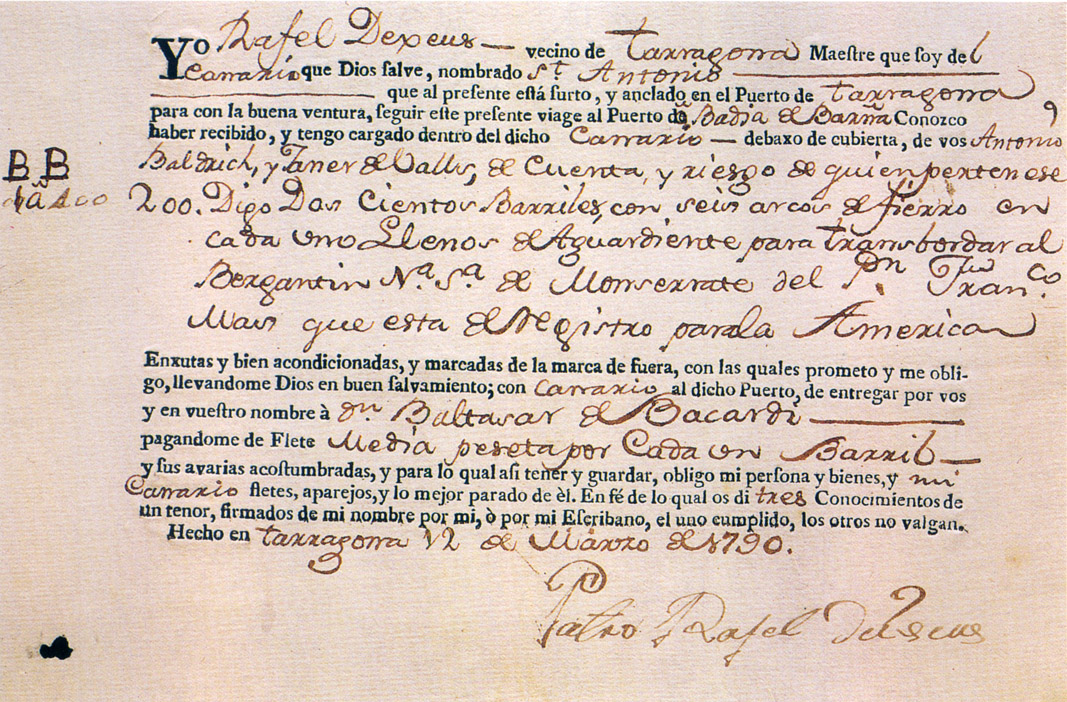 Yo Rafel Dexeus — vecino de Tarragona Maestre que soy del
Canario que Dios salve, nombrado St. Antonio
que al presente està surto, y anclado en el Puerto de Tarragona
para con la buena ventura, seguir este presente viage al Puerto dª Badia de Barña Conozco
haber recibido, y tengo cargado dentro del dicho Canario — debaxo de cubierta, de vos Antonio
Baldrich, y Janer de Valls, de Cuenta, y riesgo de quien pertenese
BB
200. Digo Dos Cientos Barriles, con seis arcos de fierro en
cada uno Llenos de Aguardiente para transbordar al
Bergantin Nª. Sª. de Monserrate del Pn. Franco.
Mas que esta de Registro para la America
Enxutas y bien acondicionadas, y marcadas de la marca de fuera, con las quales prometo y me obli-
go, llevandome Dios en buen salvamiento; con Canario al dicho Puerto, de entregar por vos
y en vuestro nombre à dn. Baltasar de Bacardi
pagandome de Flete Media peseta por Cada un Barril —
y sus avarias acostumbradas, y para lo qual asi tener y guardar, obligo mi persona y bienes, y mi
Canario fletes, aparejos, y lo mejor parado de èl. En fé de lo qual os di tres Conocimientos de
un tenor, firmados de mi nombre por mi, ò por mi Escribano, el uno cumplido, los otros no valgan.
Hecho en Tarragona 12 de Marzo de 1790.
Patro Rafel Dexeus